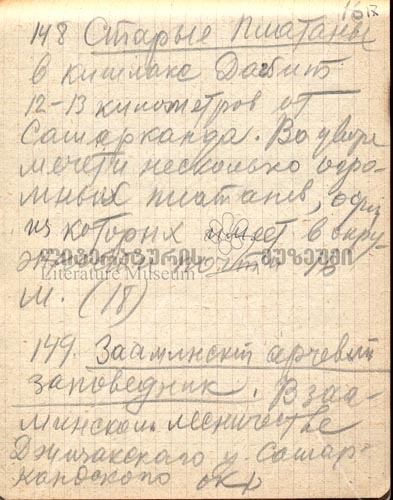 16
148 Старые Платаны
в кишлаке Дагбит
12-13 километров от
Самарканда. Во дворе
мечети несколько огро-
мных платанов, один
из которых имеет в окру-
ლიტერატურის მუზეუმი
Literature Museum
м. (18)
149. Зааминский арчевый
заповедник. В заа-
минском лесничестве
Джизакского у. Самар-
кандского окр